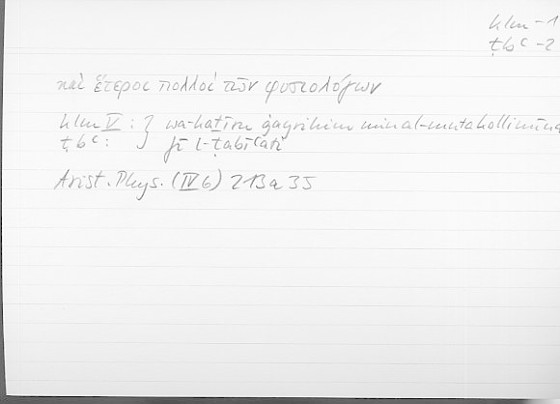 klm – 1
ṭbʿ – 2
καὶ ἕτεροι πολλοὶ τῶν φυσιολόγων
klm V : } wa-kaṯīru ġayrihim mina l-mutakallimīna
ṭbʿ : } fī l-ṭabīʿati
Arist. Phys. (IV 6) 213a35